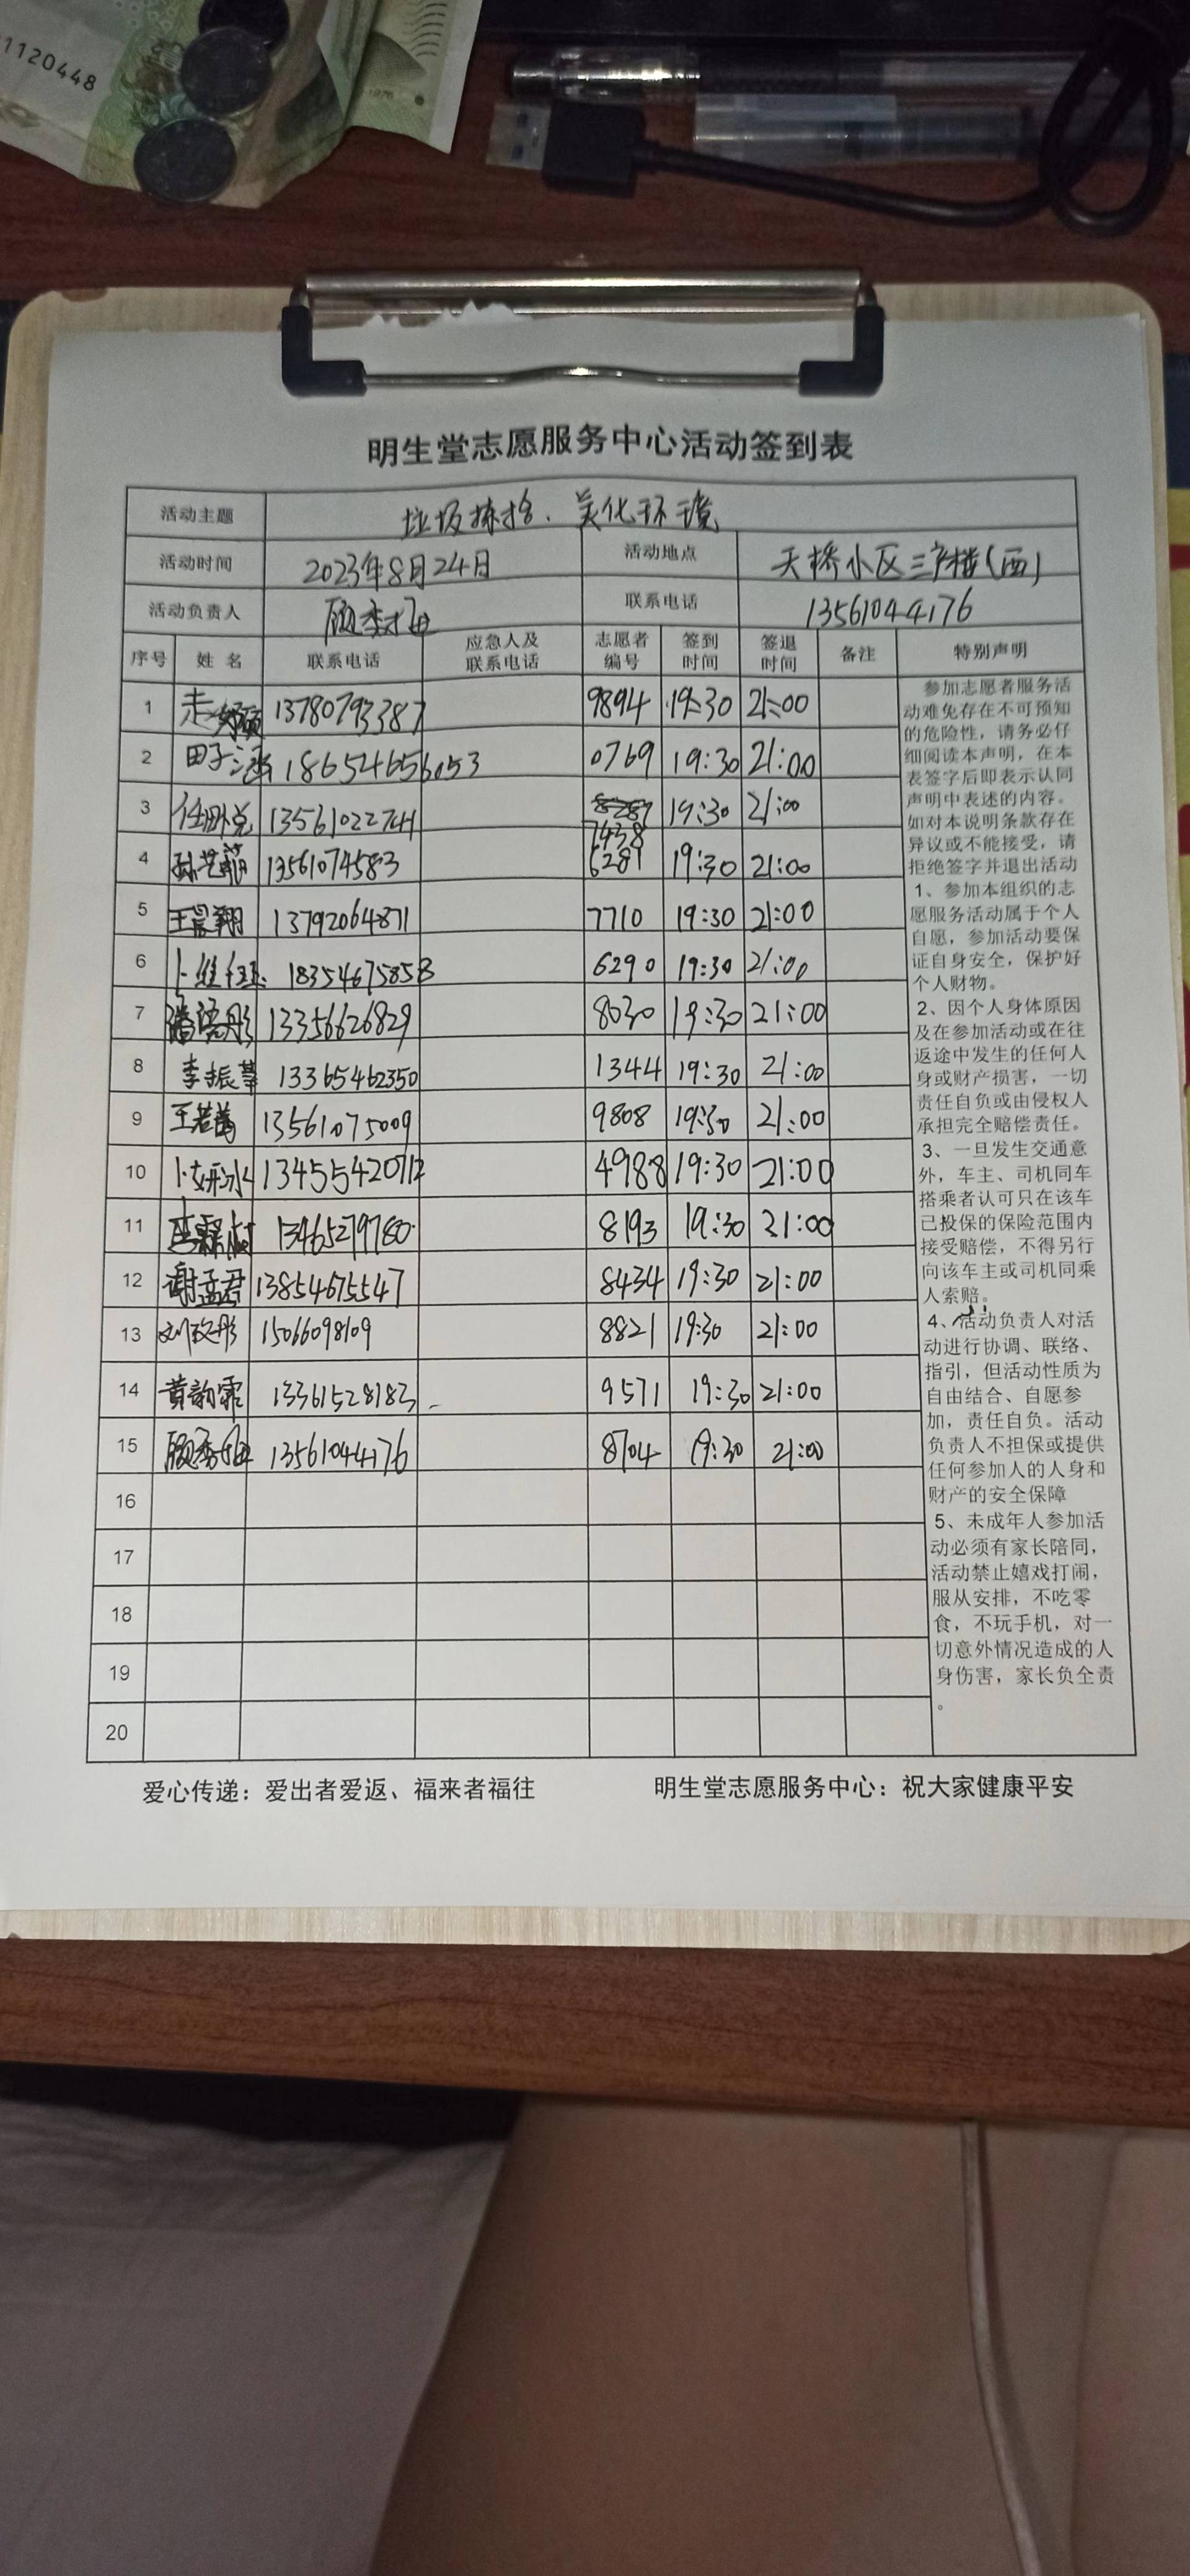 1120448
明生堂志愿服务中心活动签到表
活动主题 垃圾拣拾、美化环境
活动时间 2023年8月24日 活动地点 天桥小区三户楼(西)
活动负责人 顾秀梅 联系电话 13561044176
序号 姓名 联系电话 应急人及联系电话 志愿者编号 签到时间 签退时间 备注 特别声明
1 13780793387 9894 19:30 21:00
2 田子涵 0769 19:30 21:00
3 13561022741 7438 19:30 21:00
4 孙艺萌 13561074583 6281 19:30 21:00
5 王晨翔 13792064871 7710 19:30 21:00
6 6290 19:30 21:00
7 潘语彤 13356626829 8030 19:30 21:00
8 李振華 13365462350 1344 19:30 21:00
9 王若菡 13561075009 9808 19:30 21:00
10 卜妍冰 4988 19:30 21:00
11 13465279780 8193 19:30 21:00
12 谢孟君 13854675547 8434 19:30 21:00
13 刘玫彤 15066098109 8821 19:30 21:00
14 黄韵霏 13361528183 9571 19:30 21:00
15 顾秀梅 13561044176 8704 19:30 21:00
16
17
18
19
20
参加志愿者服务活
动难免存在不可预知
的危险性，请务必仔
细阅读本声明，在本
表签字后即表示认同
声明中表述的内容。
如对本说明条款存在
异议或不能接受，请
拒绝签字并退出活动
1、参加本组织的志
愿服务活动属于个人
自愿，参加活动要保
证自身安全，保护好
个人财物。
2、因个人身体原因
及在参加活动或在往
返途中发生的任何人
身或财产损害，一切
责任自负或由侵权人
承担完全赔偿责任。
3、一旦发生交通意
外，车主、司机同车
搭乘者认可只在该车
已投保的保险范围内
接受赔偿，不得另行
向该车主或司机同乘
人索赔。
4、活动负责人对活
动进行协调、联络、
指引，但活动性质为
自由结合、自愿参
加，责任自负。活动
负责人不担保或提供
任何参加人的人身和
财产的安全保障
5、未成年人参加活
动必须有家长陪同，
活动禁止嬉戏打闹，
服从安排，不吃零
食，不玩手机，对一
切意外情况造成的人
身伤害，家长负全责
。
爱心传递：爱出者爱返、福来者福往 明生堂志愿服务中心：祝大家健康平安